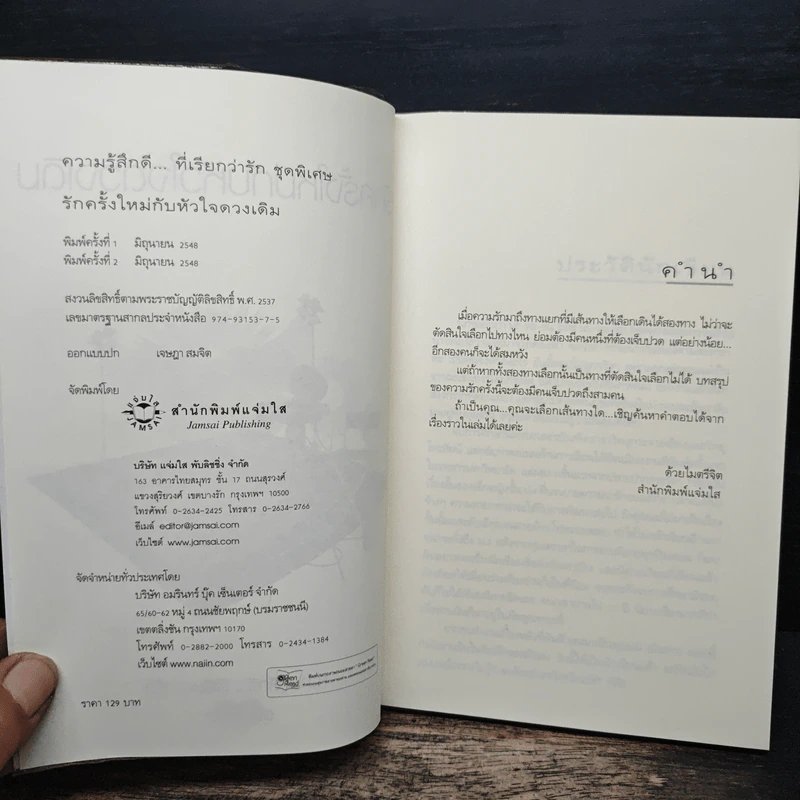 ความรู้สึกดี... ที่เรียกว่ารัก ชุดพิเศษ
รักครั้งใหม่กับหัวใจดวงเดิม
พิมพ์ครั้งที่ 1 มิถุนายน 2548
พิมพ์ครั้งที่ 2 มิถุนายน 2548
สงวนลิขสิทธิ์ตามพระราชบัญญัติลิขสิทธิ์ พ.ศ. 2537
เลขมาตรฐานสากลประจำหนังสือ 974-93153-7-5
ออกแบบปก เจษฎา สมจิต
จัดพิมพ์โดย
แจ่มใส
JAMSAI
สำนักพิมพ์แจ่มใส
Jamsai Publishing
บริษัท แจ่มใส พับลิชชิ่ง จำกัด
163 อาคารไทยสมุทร ชั้น 17 ถนนสุรวงศ์
แขวงสุริยวงศ์ เขตบางรัก กรุงเทพฯ 10500
โทรศัพท์ 0-2634-2425 โทรสาร 0-2634-2766
อีเมล์ editor@jamsai.com
เว็บไซต์ www.jamsai.com
จัดจำหน่ายทั่วประเทศโดย
บริษัท อมรินทร์ บุ๊ค เซ็นเตอร์ จำกัด
65/60-62 หมู่ 4 ถนนชัยพฤกษ์ (บรมราชชนนี)
เขตตลิ่งชัน กรุงเทพฯ 10170
โทรศัพท์ 0-2882-2000 โทรสาร 0-2434-1384
เว็บไซต์ www.naiin.com
ราคา 129 บาท
คำนำ
เมื่อความรักมาถึงทางแยกที่มีเส้นทางให้เลือกเดินได้สองทาง ไม่ว่าจะ
ตัดสินใจเลือกไปทางไหน ย่อมต้องมีคนหนึ่งที่ต้องเจ็บปวด แต่อย่างน้อย...
อีกสองคนก็จะได้สมหวัง
แต่ถ้าหากทั้งสองทางเลือกนั้นเป็นทางที่ตัดสินใจเลือกไม่ได้ บทสรุป
ของความรักครั้งนี้จะต้องมีคนเจ็บปวดถึงสามคน
ถ้าเป็นคุณ...คุณจะเลือกเส้นทางใด...เชิญค้นหาคำตอบได้จาก
เรื่องราวในเล่มได้เลยค่ะ
ด้วยไมตรีจิต
สำนักพิมพ์แจ่มใส